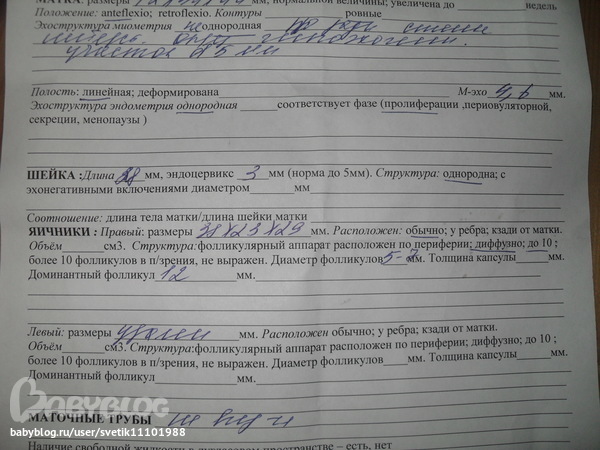 МАТКА: размеры мм, нормальной величины; увеличена до недель
Положение: anteflexio; retroflexio. Контуры ровные
Эхоструктура миометрия неоднородная
участок 5 мм
Полость: линейная; деформирована М-эхо 4,6 мм.
Эхоструктура эндометрия однородная соответствует фазе (пролиферации ,периовуляторной,
секреции, менопаузы )
ШЕЙКА :Длина мм, эндоцервикс 3 мм (норма до 5мм). Структура: однородна; с
эхонегативными включениями диаметром мм
Соотношение: длина тела матки/длина шейки матки
ЯИЧНИКИ : Правый: размеры 38x23x29 мм. Расположен: обычно; у ребра; кзади от матки.
Объём см3. Структура:фолликулярный аппарат расположен по периферии; диффузно; до 10 ;
более 10 фолликулов в п/зрения, не выражен. Диаметр фолликулов 5-7 мм. Толщина капсулы мм.
Доминантный фолликул 12 мм.
Левый: размеры удален мм. Расположен обычно; у ребра; кзади от матки.
Объём см3. Структура:фолликулярный аппарат расположен по периферии; диффузно; до 10 ;
более 10 фолликулов в п/зрения, не выражен. Диаметр фолликулов мм. Толщина капсулы мм.
Доминантный фолликул мм.
BABYBLOG
МАТОЧНЫЕ ТРУБЫ
babyblog.ru/user/svetik11101988
Наличие свободной жидкости в дугласовом пространстве – есть, нет